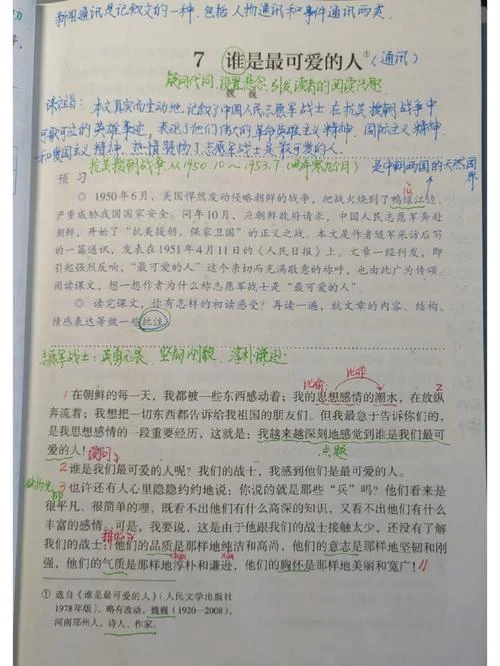 新闻通讯是记叙文的一种，包括人物通讯和事件通讯两类。
7 谁是最可爱的人①（通讯）
魏巍
疑问代词 设置悬念，引发读者的阅读兴趣
课文主旨：本文真实而生动地记叙了中国人民志愿军战士在抗美援朝战争中
可歌可泣的英雄事迹，表现了他们伟大的革命英雄主义精神、国际主义精神
和爱国主义精神，热情赞扬了志愿军战士是最可爱的人。
抗美援朝战争从1950.10～1953.7（两年零九个月）
是中朝两国的天然国界
预习
lù
◎ 1950年6月，美国悍然发动侵略朝鲜的战争，把战火烧到了鸭绿江边，
严重威胁我国国家安全。同年10月，应朝鲜政府请求，中国人民志愿军奔赴
朝鲜，开始了“抗美援朝，保家卫国”的正义之战。本文是作者随军采访后写
的一篇通讯，发表在1951年4月11日的《人民日报》上。文章一经刊发，即
引起强烈反响，“最可爱的人”这个亲切而充满敬意的称呼，也由此广为传颂。
阅读课文，想一想作者为什么称志愿军战士是“最可爱的人”。
◎ 读完课文，你有怎样的初读感受？再读一遍，就文章的内容、结构、
情感表达等做一些批注。
志愿军战士：英勇无畏 坚韧刚毅 淳朴谦逊
比喻
比作
2
1 在朝鲜的每一天，我都被一些东西感动着；我的思想感情的潮水，在放纵
奔流着；我想把一切东西都告诉给我祖国的朋友们。但我最急于告诉你们的，
是我思想感情的一段重要经历，这就是：我越来越深刻地感觉到谁是我们最可
爱的人！
设问
点题
2 谁是我们最可爱的人呢？我们的战士，我感到他们是最可爱的人。
欲扬先抑
3 也许还有人心里隐隐约约地说：你说的就是那些“兵”吗？他们看来是
很平凡、很简单的哩，既看不出他们有什么高深的知识，又看不出他们有什么
丰富的感情。可是，我要说，这是由于他跟我们的战士接触太少，还没有了解
我们的战士：他们的品质是那样地纯洁和高尚，他们的意志是那样地坚韧和刚
排比
强，他们的气质是那样地淳朴和谦逊，他们的胸怀是那样地美丽和宽广！
chún
xùn
① 选自《谁是最可爱的人》（人民文学出版社
1978年版）。略有改动。魏巍（1920—2008），
河南郑州人，诗人、作家。